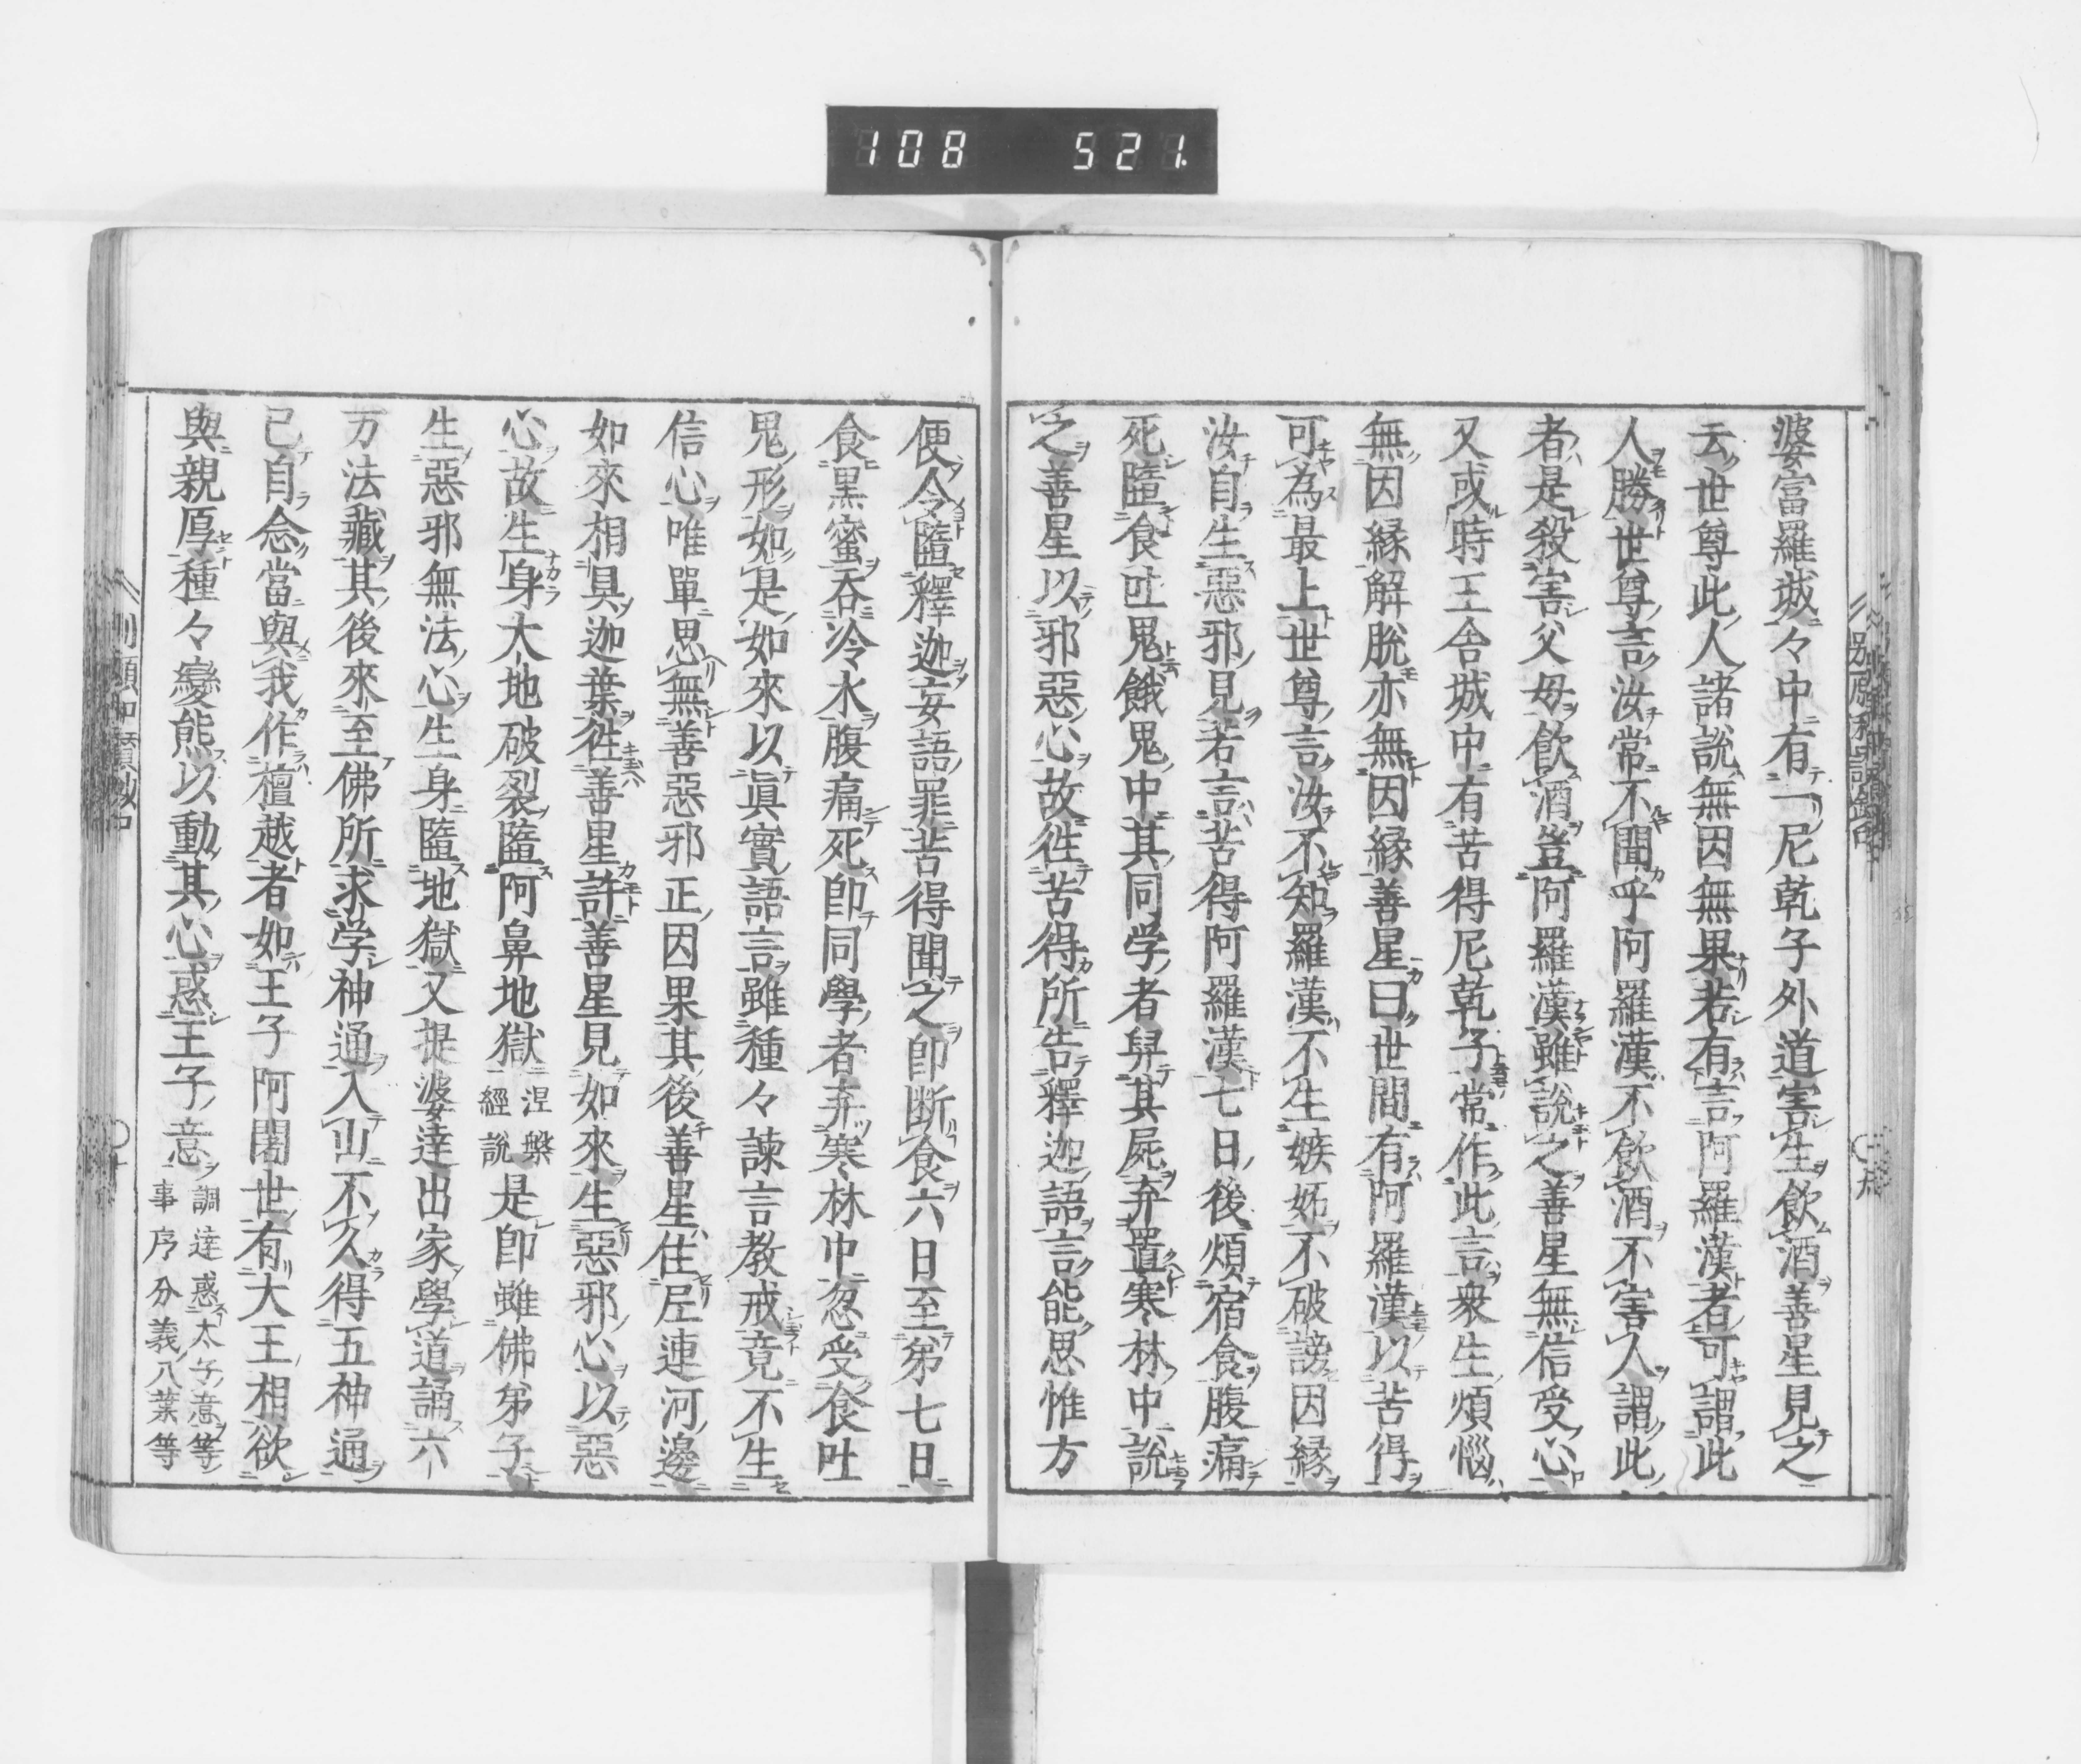 108 521
婆富羅城々中有一尼乾子外道害生飲酒善星見之
云世尊此人諸説無因無果若有言阿羅漢者可謂此
人勝世尊言汝常不聞乎阿羅漢不飲酒不害人謂此
者是殺害父母飲酒豈阿羅漢雖説之善星無信受心
又或時王舎城中有苦得尼乾子常作此言衆生煩悩
無因縁解脱亦無因縁善星曰世間有阿羅漢以苦得
可為最上世尊言汝不知羅漢不生嫉妬不破謗因縁
汝自生惡邪見若言苦得阿羅漢七日後煩宿食腹痛
死墮食吐鬼餓鬼中其同学者舁其屍弃置寒林中説
之善星以邪惡心故徃苦得所告釋迦語言能思惟方
便令墮釋迦妄語罪苦得聞之即断食六日至第七日
食黒蜜呑冷水腹痛死即同學者弃寒林中忽受食吐
鬼形如是如來以眞實語言雖種々諫言教戒竟不生
信心唯單思無善惡邪正因果其後善星住尼連河邊
如來相具迦葉徃善星許善星見如來生惡邪心以惡
心故生身大地破裂墮阿鼻地獄涅槃經説是即雖佛弟子
生惡邪無法心生身墮地獄又提婆達出家學道誦六
万法藏其後來至佛所求学神通入山不久得五神通
已自念當與我作檀越者如王子阿闍世有大王相欲
與親厚種々變態以動其心惑王子意調達惑太子意等事序分義八葉等